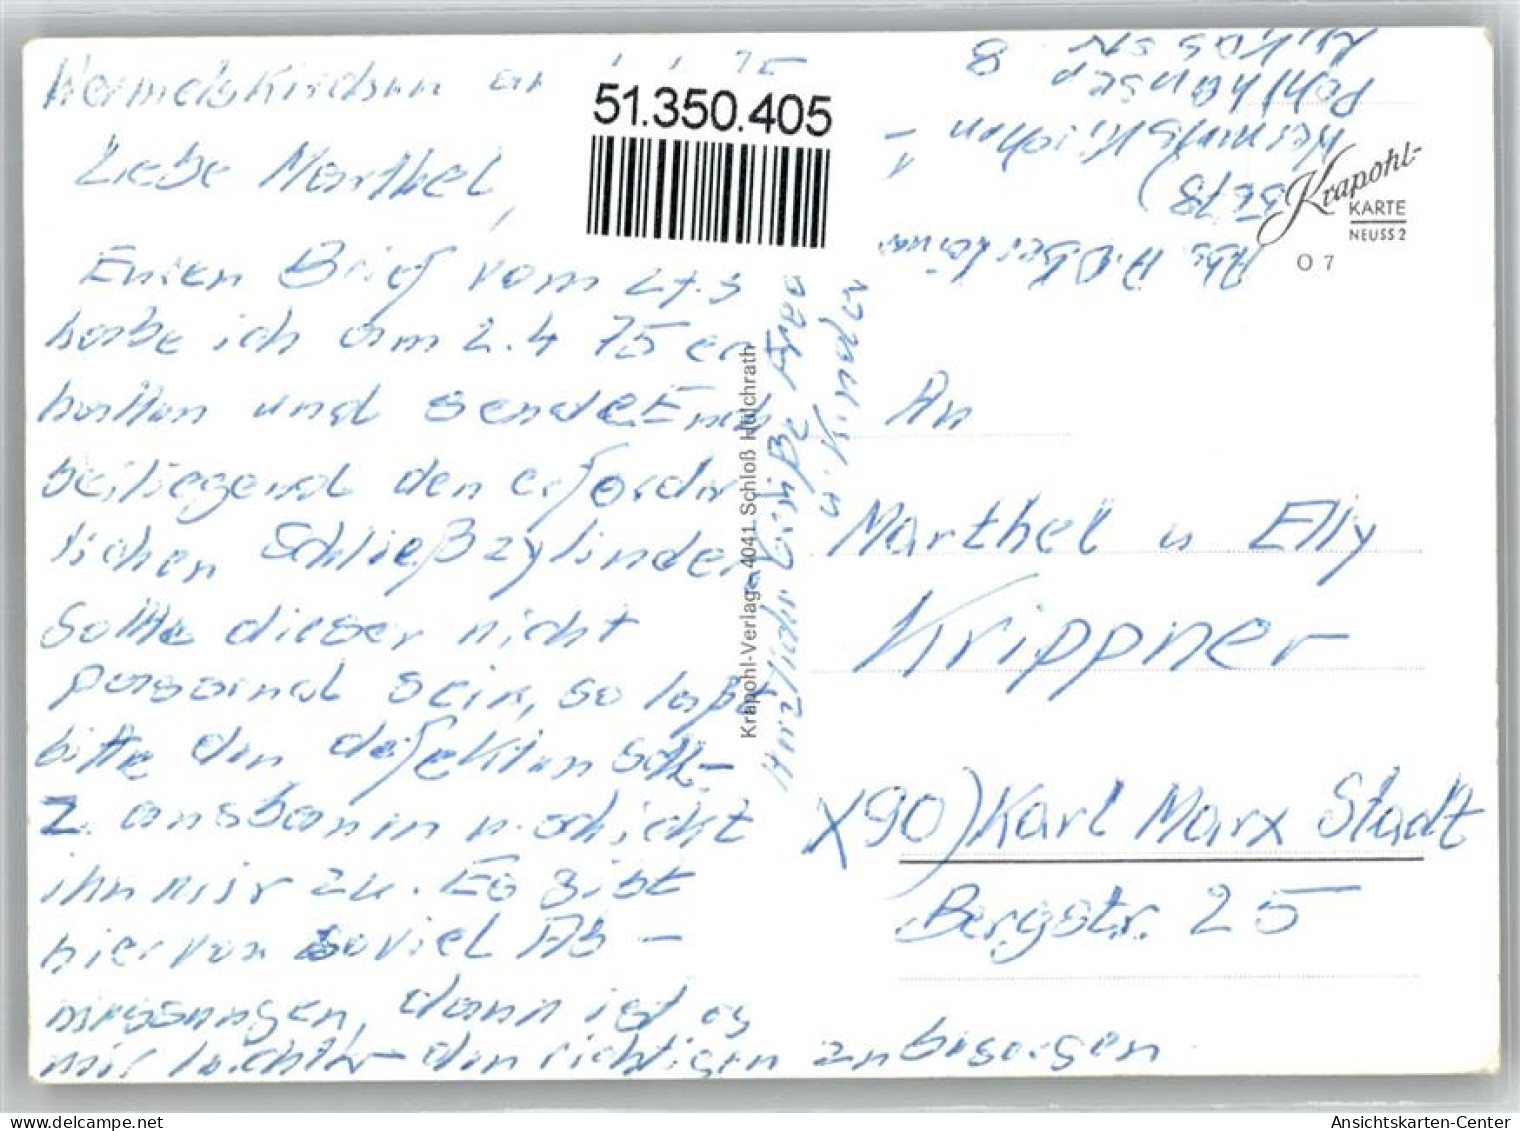 Wermelskirchen
51.350.405
Liebe Marthel,
Euren Brief vom 27.3
habe ich am 2.4 75 er
halten und sende Euch
beiliegend den erforder
lichen Schließzylinder
Sollte dieser nicht
passend sein, so laßt
bitte den defekten Schl-
Z. ausbauen u. schickt
ihn mir zu. Es gibt
hiervon soviel Ab-
messungen, dann ist es
mir leichter den richtigen zu besorgen
Herzlichen Grüße
Krapohl-Verlag, 4041 Schloß Hülchrath
Abs.
Wermelskirchen 1 -
Pohlhausen
8
Krapohl-
KARTE
NEUSS 2
O 7
An
Marthel u Elly
Krippner
X90) Karl Marx Stadt
Bergstr. 25
Ansichtskarten-Center